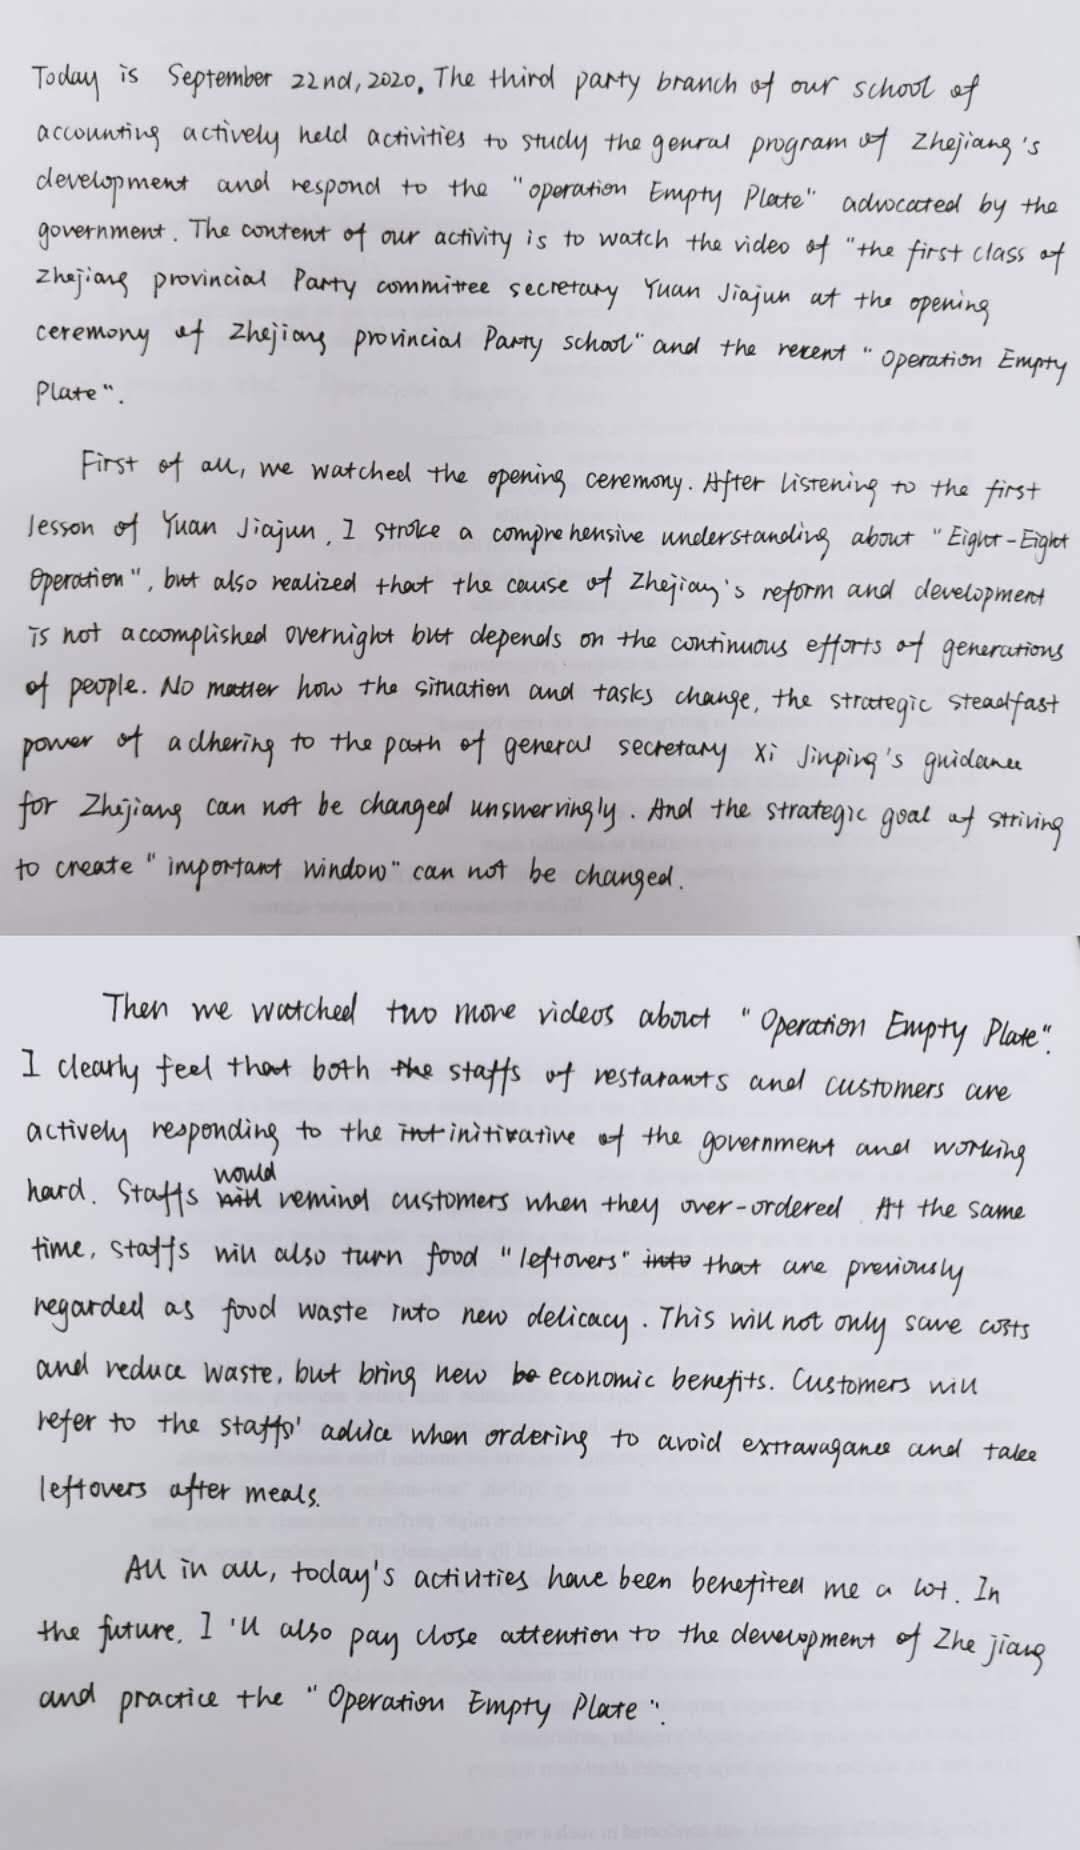 Today is September 22nd, 2020. The third party branch of our school of
accounting actively held activities to study the genral program of Zhejiang's
development and respond to the "operation Empty Plate" advocated by the
government. The content of our activity is to watch the video of "the first class of
Zhejiang provincial Party committee secretary Yuan Jiajun at the opening
ceremony of Zhejiang provincial Party school" and the recent "Operation Empty
Plate".
First of all, we watched the opening ceremony. After listening to the first
lesson of Yuan Jiajun, I stroke a comprehensive understanding about "Eight-Eight
Operation", but also realized that the cause of Zhejiang's reform and development
is not accomplished overnight but depends on the continuous efforts of generations
of people. No matter how the situation and tasks change, the strategic steadfast
power of adhering to the path of general secretary Xi Jinping's guidance
for Zhejiang can not be changed unswervingly. And the strategic goal of striving
to create "important window" can not be changed.
Then we watched two more videos about "Operation Empty Plate".
I clearly feel that both the staffs of restarants and customers are
actively responding to the int initivative of the government and working
would
hard. Staffs will remind customers when they over-ordered. At the same
time, staffs will also turn food "leftovers" into that are previously
regarded as food waste into new delicacy. This will not only save costs
and reduce waste, but bring new be economic benefits. Customers will
refer to the staffs' advice when ordering to avoid extravagance and take
leftovers after meals.
All in all, today's activities have been benefited me a lot. In
the future, I'll also pay close attention to the development of Zhejiang
and practice the "Operation Empty Plate".